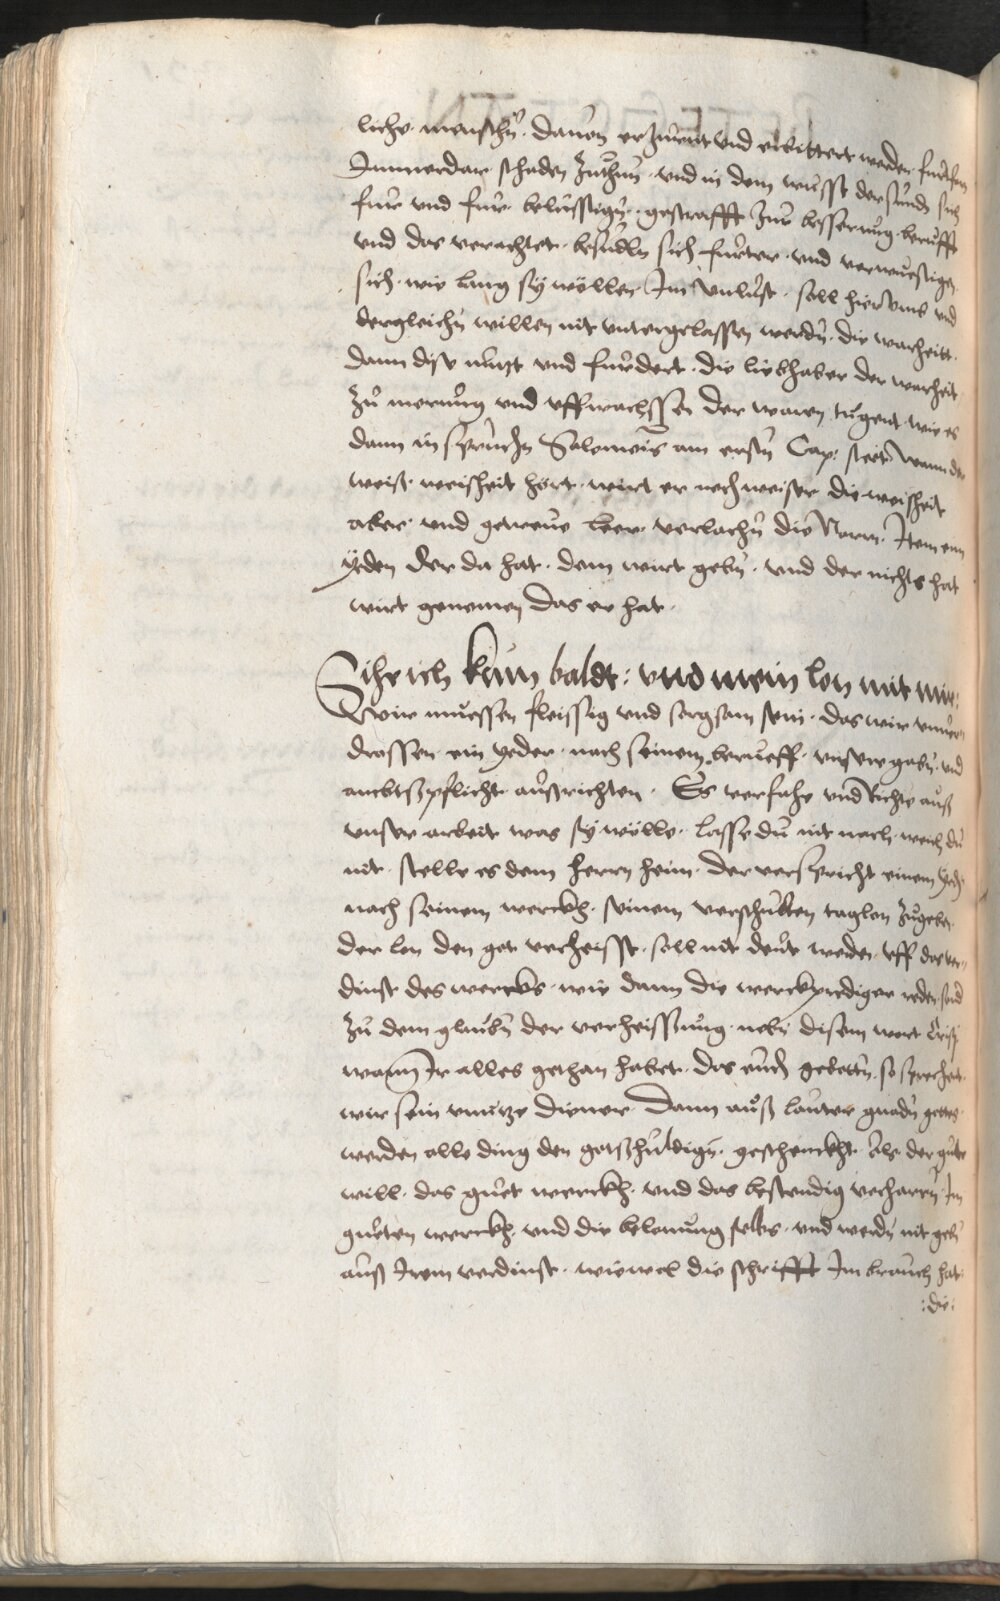 liche menschn. dauon erzurnt und erbittert werden furfarn
Immerdar schaden zuthun. und in dem wusst der sund sich
fur und fur belustign. gestrafft zur besserung berufft
und das verachtet. besudln sich furter. und verwuestigen
sich. wie lang sy wöllen Im unlust. soll hierumb und
dergleichn willen nit untergelassen werdn. die warheitt.
dann dise nutzt und furdert. die liebhaber der warheit
zu merung und uffwachssen der waren tugent. wie es
dann in spruchn Salomonis am erstn Cap: steet wann der
weise weisheit hört. wirt er noch weiser die weisheit
aber. und getreue leer. verlachn die Narrn. Item eim
yeden der da hat. dem wirt gebn. und der nichts hat
wirt genomen das er hat.
Sihe ich kum baldt: und mein lon mit mir:
Wir muessen fleissig und sorgsam sein. das wir unver
drossen ein yeder. nach seinem berueff. unsere gabn. und
ambtspflicht außrichten. Es verfahe und Richte auß
unser arbeit was sy wölle. lasse du nit nach. weich du
nit. stelle es dem herrn heim. der verspricht einem yedn
nach seinem werckh. seinem verschulten taglon zugeben.
der lon den got verheisst. soll nit deut werden. uff das ver
dinst des wercks. wie dann die werckprediger reden sond
zu dem glaubn der verheissung. nebn disem wort Cristi
wann Ir alles gethan habet. das euch gebottn. so sprechet.
wir sein unnutze diener. Dann auß lauter gnadn gottes.
werden alle ding den gotshuldign. geschenckht. Als der gute
will. das guet werckh. und das bestendig verharrn Im
gueten werckh. und die belonung selbs. und werdn nit gebn
auß Irem verdinst. wiewol die schrifft Im brauch hat
:die: